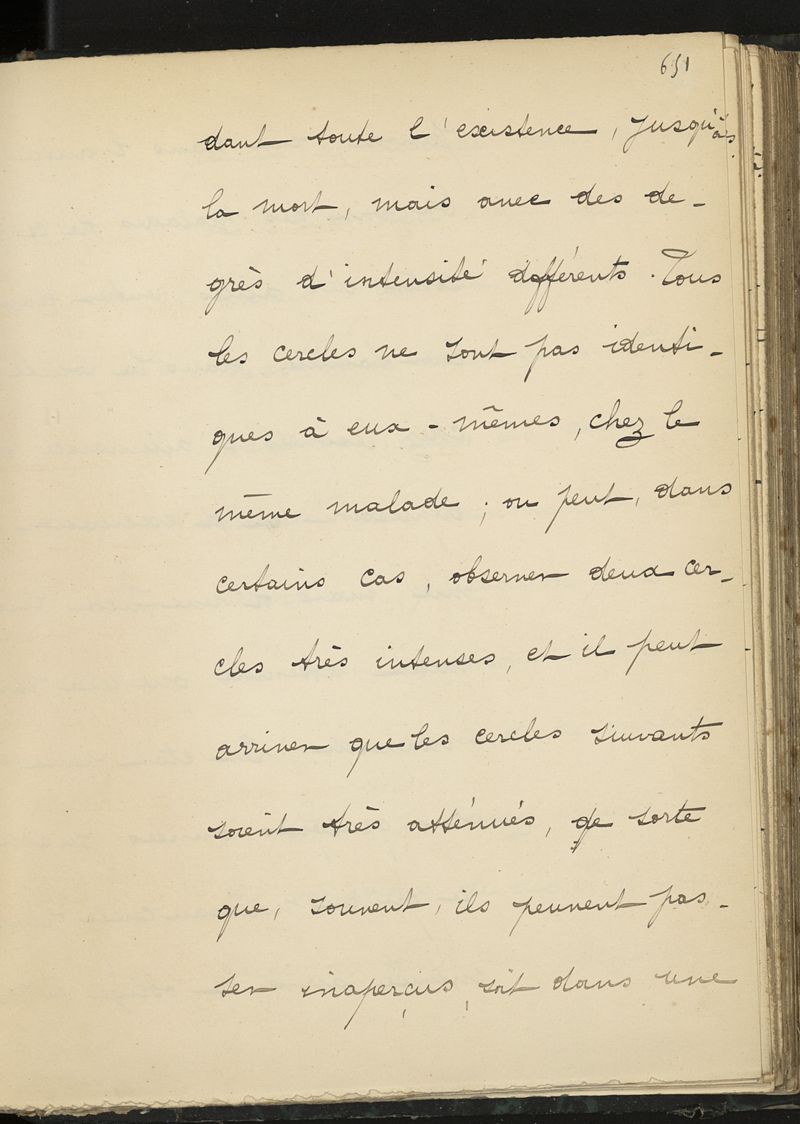 651
dant toute l'existence, jusqu'à
la mort, mais avec des de-
grès d'intensité différents. Tous
les cercles ne sont pas identi-
ques à eux-mêmes, chez le
même malade ; on peut, dans
certains cas, observer deux cer-
cles très intenses, et il peut
arriver que les cercles suivants
soient très atténués, de sorte
que, souvent, ils peuvent pas-
ser inaperçus, soit dans une